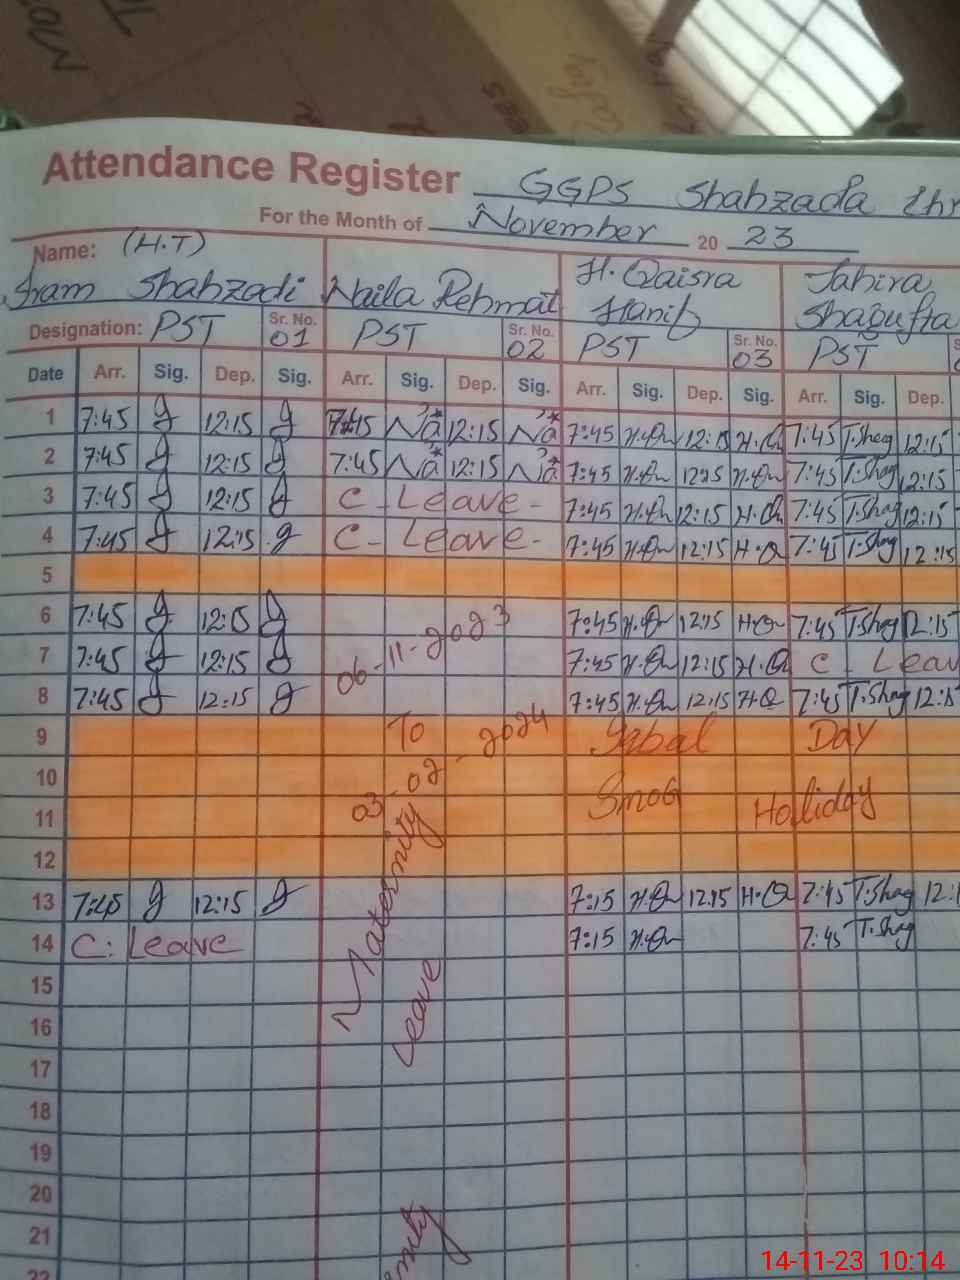 Attendance Register GGPS Shahzada
For the Month of November 20 23
Name: (H.T)
Iram Shahzadi Naila Rehmat H.Qaisra Hanif Tahira Shagufta
Designation: PST Sr. No. 01 PST Sr. No. 02 PST Sr. No. 03 PST
Date Arr. Sig. Dep. Sig. Arr. Sig. Dep. Sig. Arr. Sig. Dep. Sig. Arr. Sig. Dep.
1 7:45 12:15 7:45 Na 12:15 Na 7:45 H.Q 12:15 H.Q 7:45 T.Shag 12:15
2 7:45 12:15 7:45 Na 12:15 Na 7:45 H.Q 1225 H.Q 7:45 T.Shag 12:15
3 7:45 12:15 C - Leave - 7:45 H.Q 12:15 H.Q 7:45 T.Shag 12:15
4 7:45 12:15 C - Leave - 7:45 H.Q 12:15 H.Q 7:45 T.Shag 12:15
5
6 7:45 12:15 06-11-2023 7:45 H.Q 12:15 H.Q 7:45 T.Shag 12:15
7 7:45 12:15 7:45 H.Q 12:15 H.Q C - Leav
8 7:45 12:15 7:45 H.Q 12:15 H.Q 7:45 T.Shag 12:15
9 To Iqbal Day
10 03-02-2024
11 Smog Holiday
12
13 7:45 12:15 7:15 H.Q 12.15 H.Q 7:45 T.Shag 12:1
14 C: Leave 7:15 H.Q 7:45 T.Shag
Maternity Leave
15
16
17
18
19
20
21
22
14-11-23 10:14